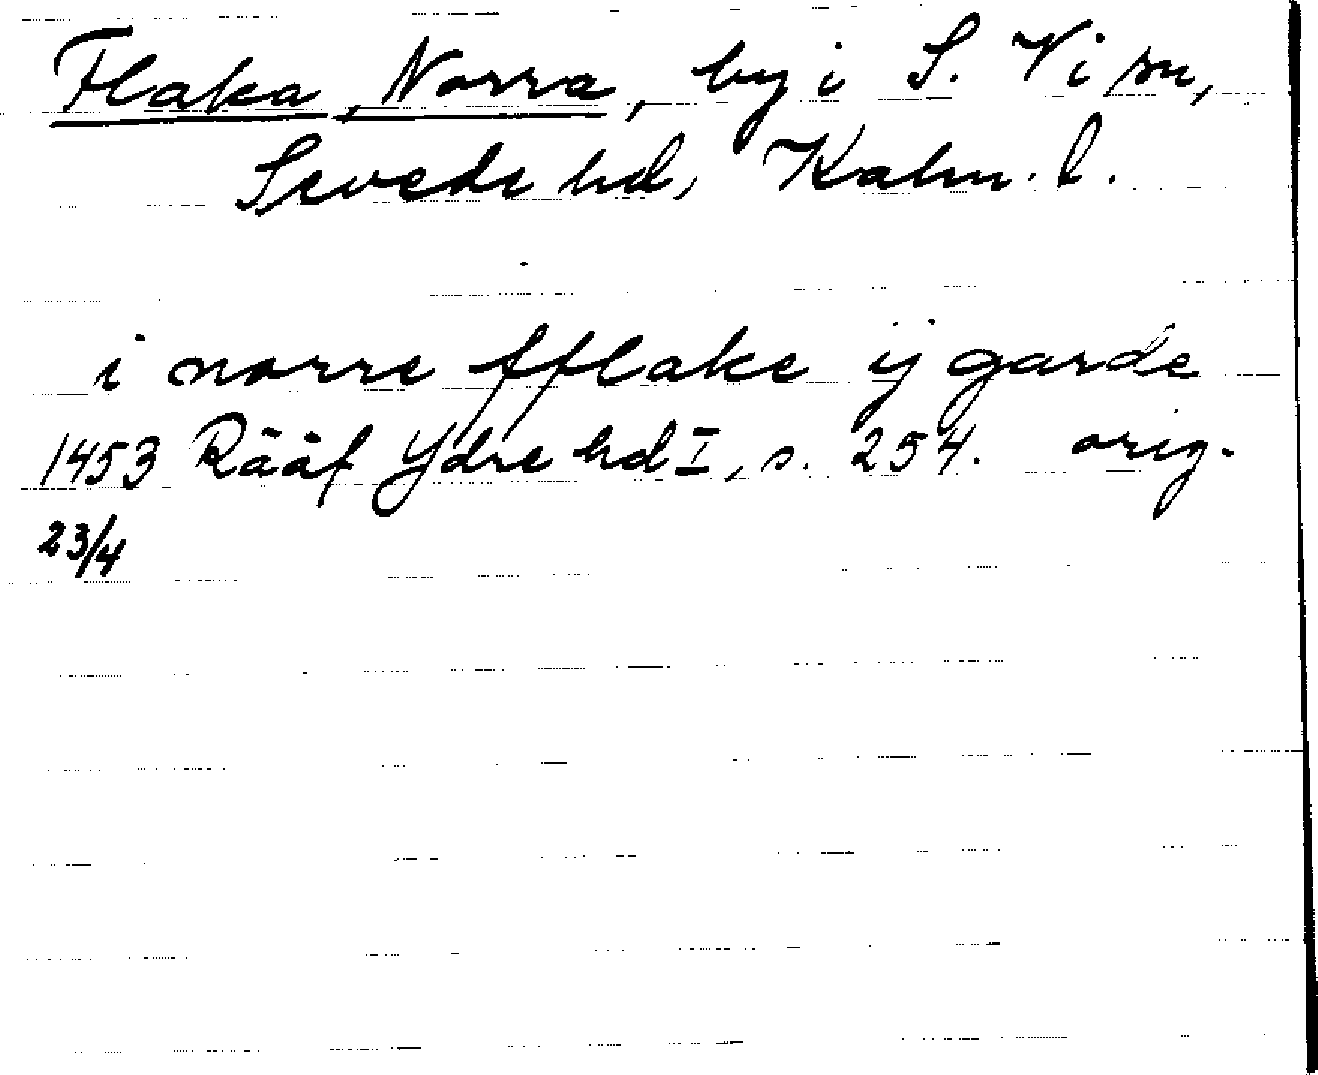 Flaka, Norra, by i S. Vi sn,
Sevede hd, Kalm. l.
i norre fflake ij garde
1453 Rääf Ydre hd I, s. 254. orig.
23/4